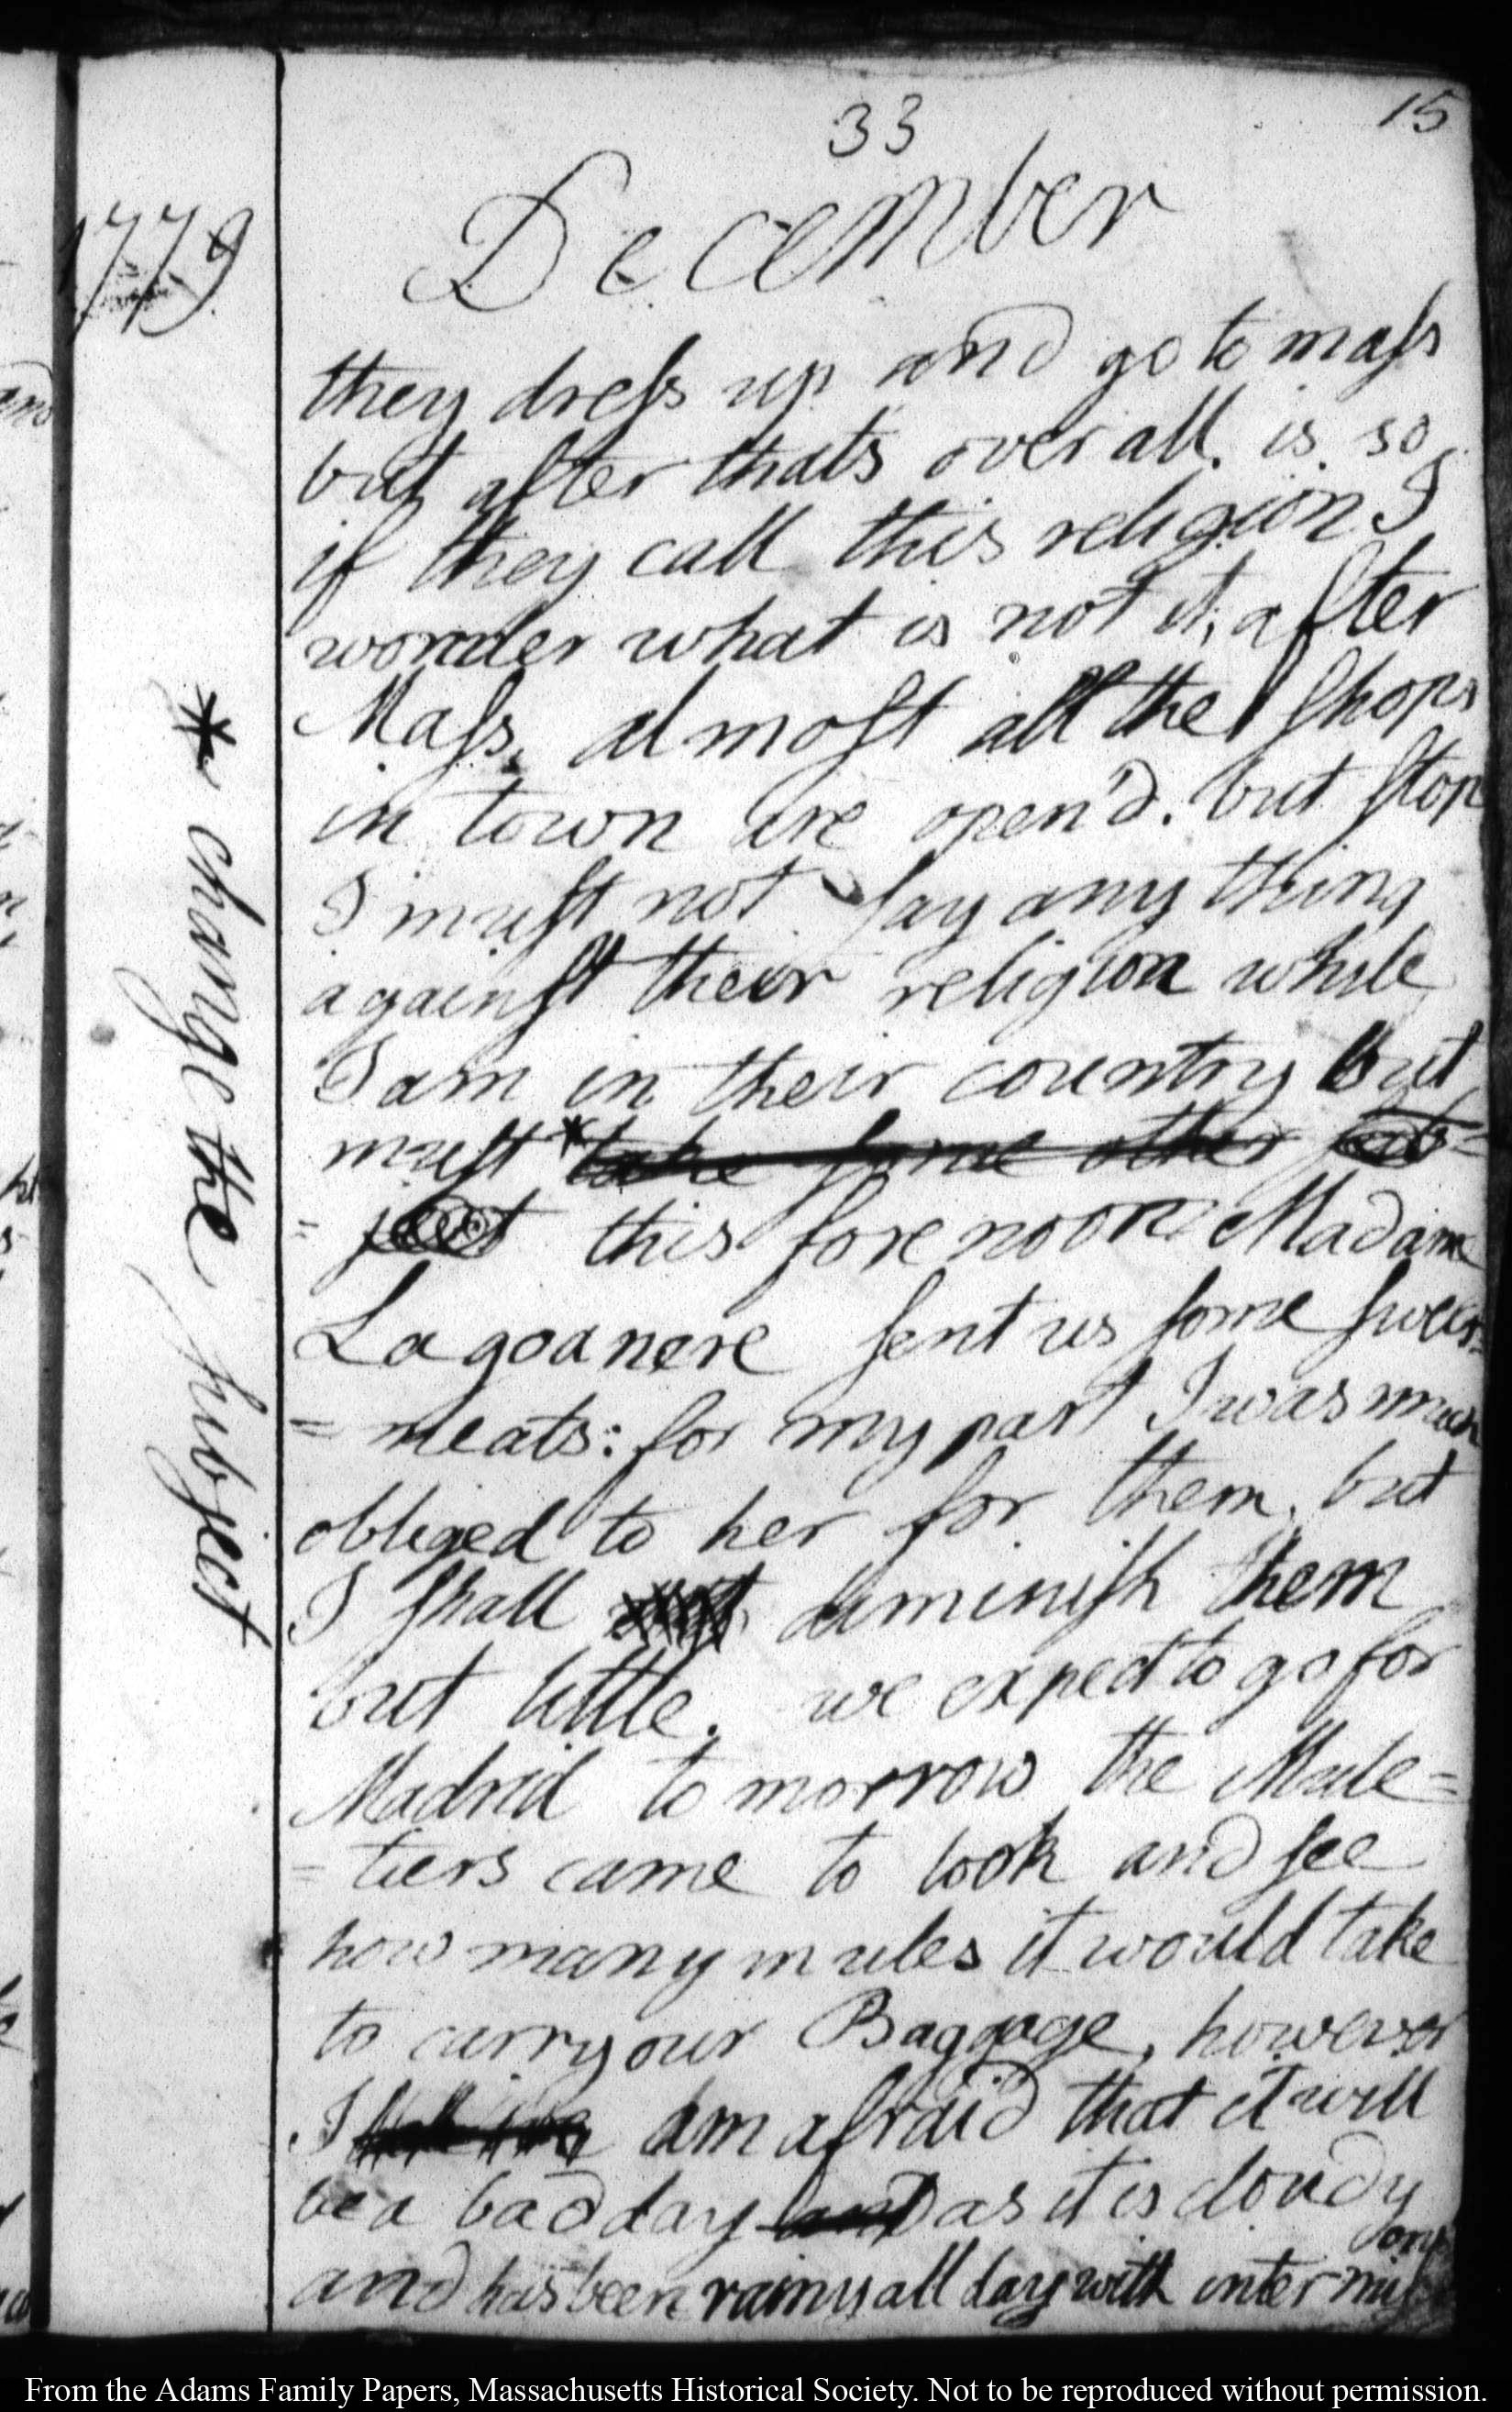 33
15
1779
December
they dress up and go to mass
but after thats over all is so
if they call this religion I
wonder what is not it, after
Mass, almost all the Shops
in town are open'd. but stop
I must not say any thing
against their religion while
I am in their country but
must * take some other sub=
=ject this forenoon Madam
Lagoanere sent us some sweet=
=meats: for my part I was much
obliged to her for them, but
I shall diminish them
but little. we expect to go for
Madrid to morrow the Mule=
=tiers came to look and see
how many mules it would take
to carry our Baggage, however
I am afraid that it will
be a bad day and as it is cloudy
and has been rainy all day with intermissions
* change the subject
From the Adams Family Papers, Massachusetts Historical Society. Not to be reproduced without permission.